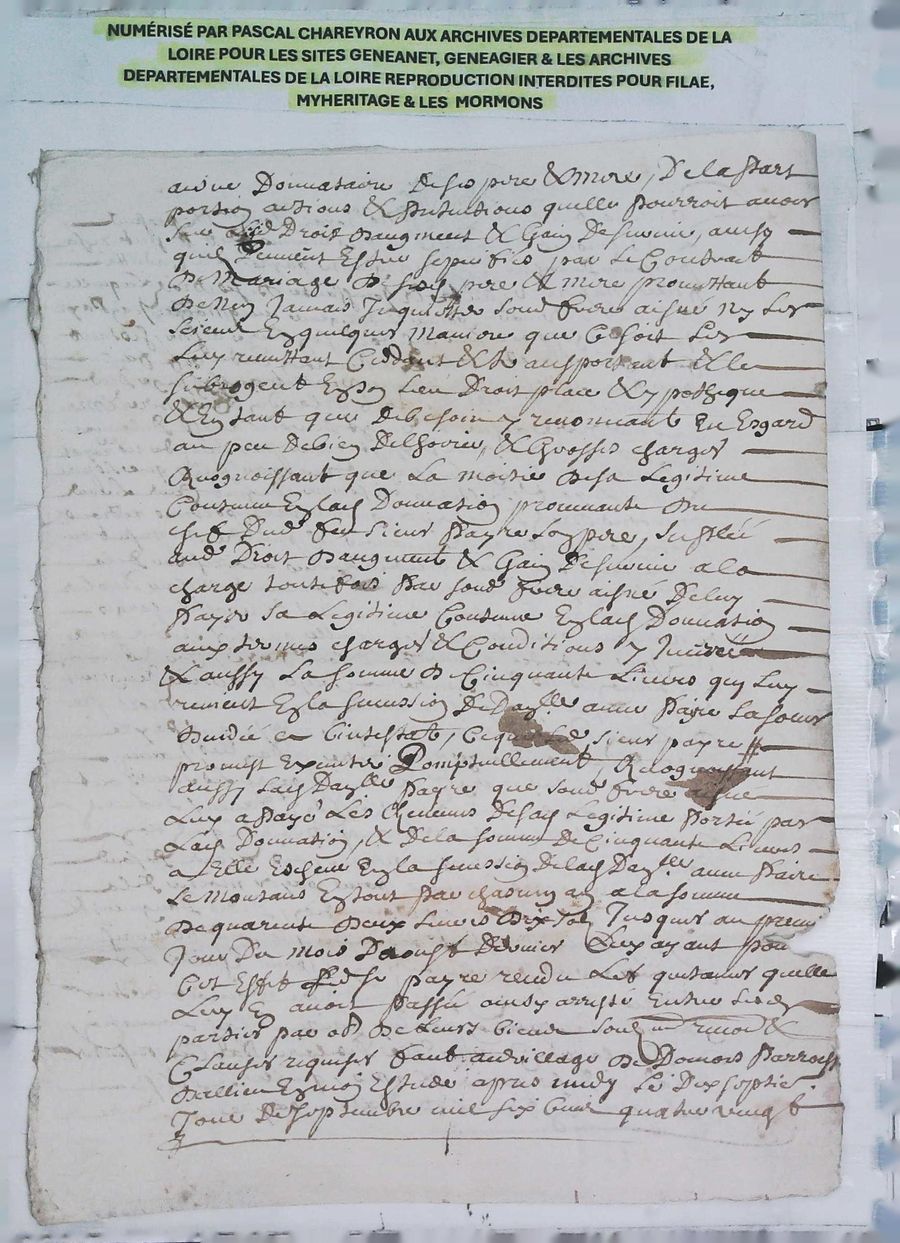 NUMÉRISÉ PAR PASCAL CHAREYRON AUX ARCHIVES DEPARTEMENTALES DE LA
LOIRE POUR LES SITES GENEANET, GENEAGIER & LES ARCHIVES
DEPARTEMENTALES DE LA LOIRE REPRODUCTION INTERDITES POUR FILAE,
MYHERITAGE & LES MORMONS
Donnataire de ses pere & mere, De la part
portion actions & pretentions quelle pourroit avoir
Droit daugment & Gain De survie, ainsy
quil estre speciffiés par le Contrait
De Mariage de ses pere & mere promettant
De Jamais Inquietter sond frere aisné Ny les
sciens En quelque maniere que Ce soit les
Luy remettant Ceddant & transportant & le
subrogent En son Lieu Droit place & ypotheque
& En tant que de besoin y renonceant En Esgard
au peu de bien & Grosses charges
Recognoissant que La moitié De sa Legitime
Contenue En lad Donnation prouenante Du
chef Dud feu Sieur payre son pere,
aud Droit daugment & Gain De survie a la
charge toutefois par sond frere aisné De luy
payer sa Legitime Contenue En lad Donnation
aux termes charges & Conditions y
& aussy La somme De Cinquante Livres quy Luy
En la sucession De Dayelle anne payre sa soeur
Decedée ab intestat, Ce que led sieur payre
promest Executer Ponctuellement, Recognoissant
aussy Lad Dayelle payre que sond frere aisné
Luy a payé Les De sad Legitime portée par
Lad Donnation, & De la somme De Cinquante Livres
a Elle Escheue En la sucession De lad Dayelle anne paire
Le montans En tout par chascun an a la somme
De quarente Deux Livres Dix sols Jusques au premier
Jour Du mois Daoust Dernier Luy ayant pour
Cet Effet led sr payre rendu Les quitances quelle
Luy En avoit passée ainsy arresté Entre Lesd
parties par obon De Leurs biens &
Clauses requises fait au village De parroisse
Dallieu En mon Estude apres midy Le Dix septie.
Jour De septembre mil six cens quatre vingt